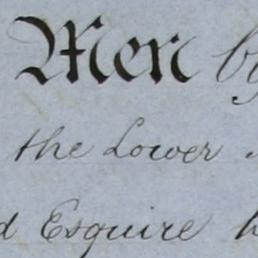 Men by
the Lower
d Esquire h